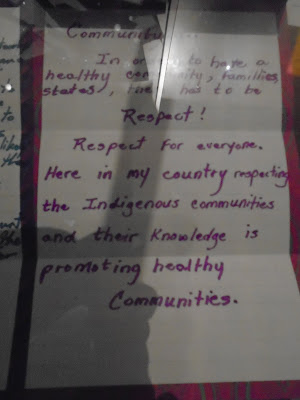 Community
In order to have a
healthy community, families,
states, there has to be
Respect!
Respect for everyone.
Here in my country respecting
the Indigenous communities
and their Knowledge is
promoting healthy
Communities.